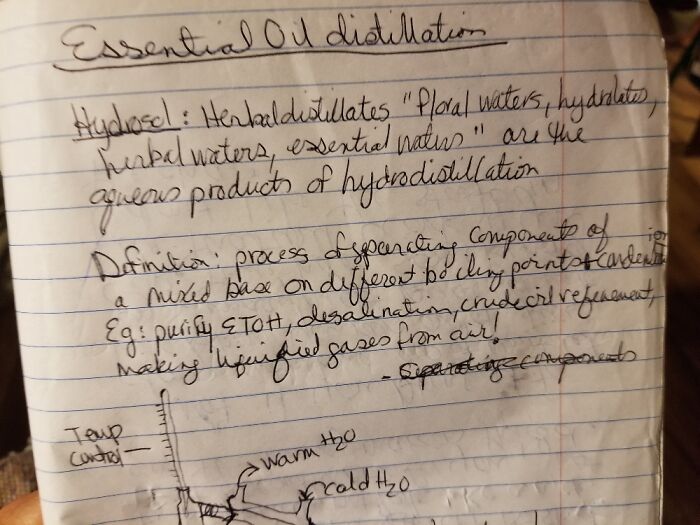 Essential Oil distillation
Hydrosol: Herbal distillates "floral waters, hydrolates,
herbal waters, essential waters" are the
aqueous products of hydrodistillation
Definition: process of separating components of
a mixed base on different boiling points + condensation
Eg: purify ETOH, desalination, crude oil refinement,
making liquified gases from air!
- Separating components
Temp
control
warm H2O
cold H2O